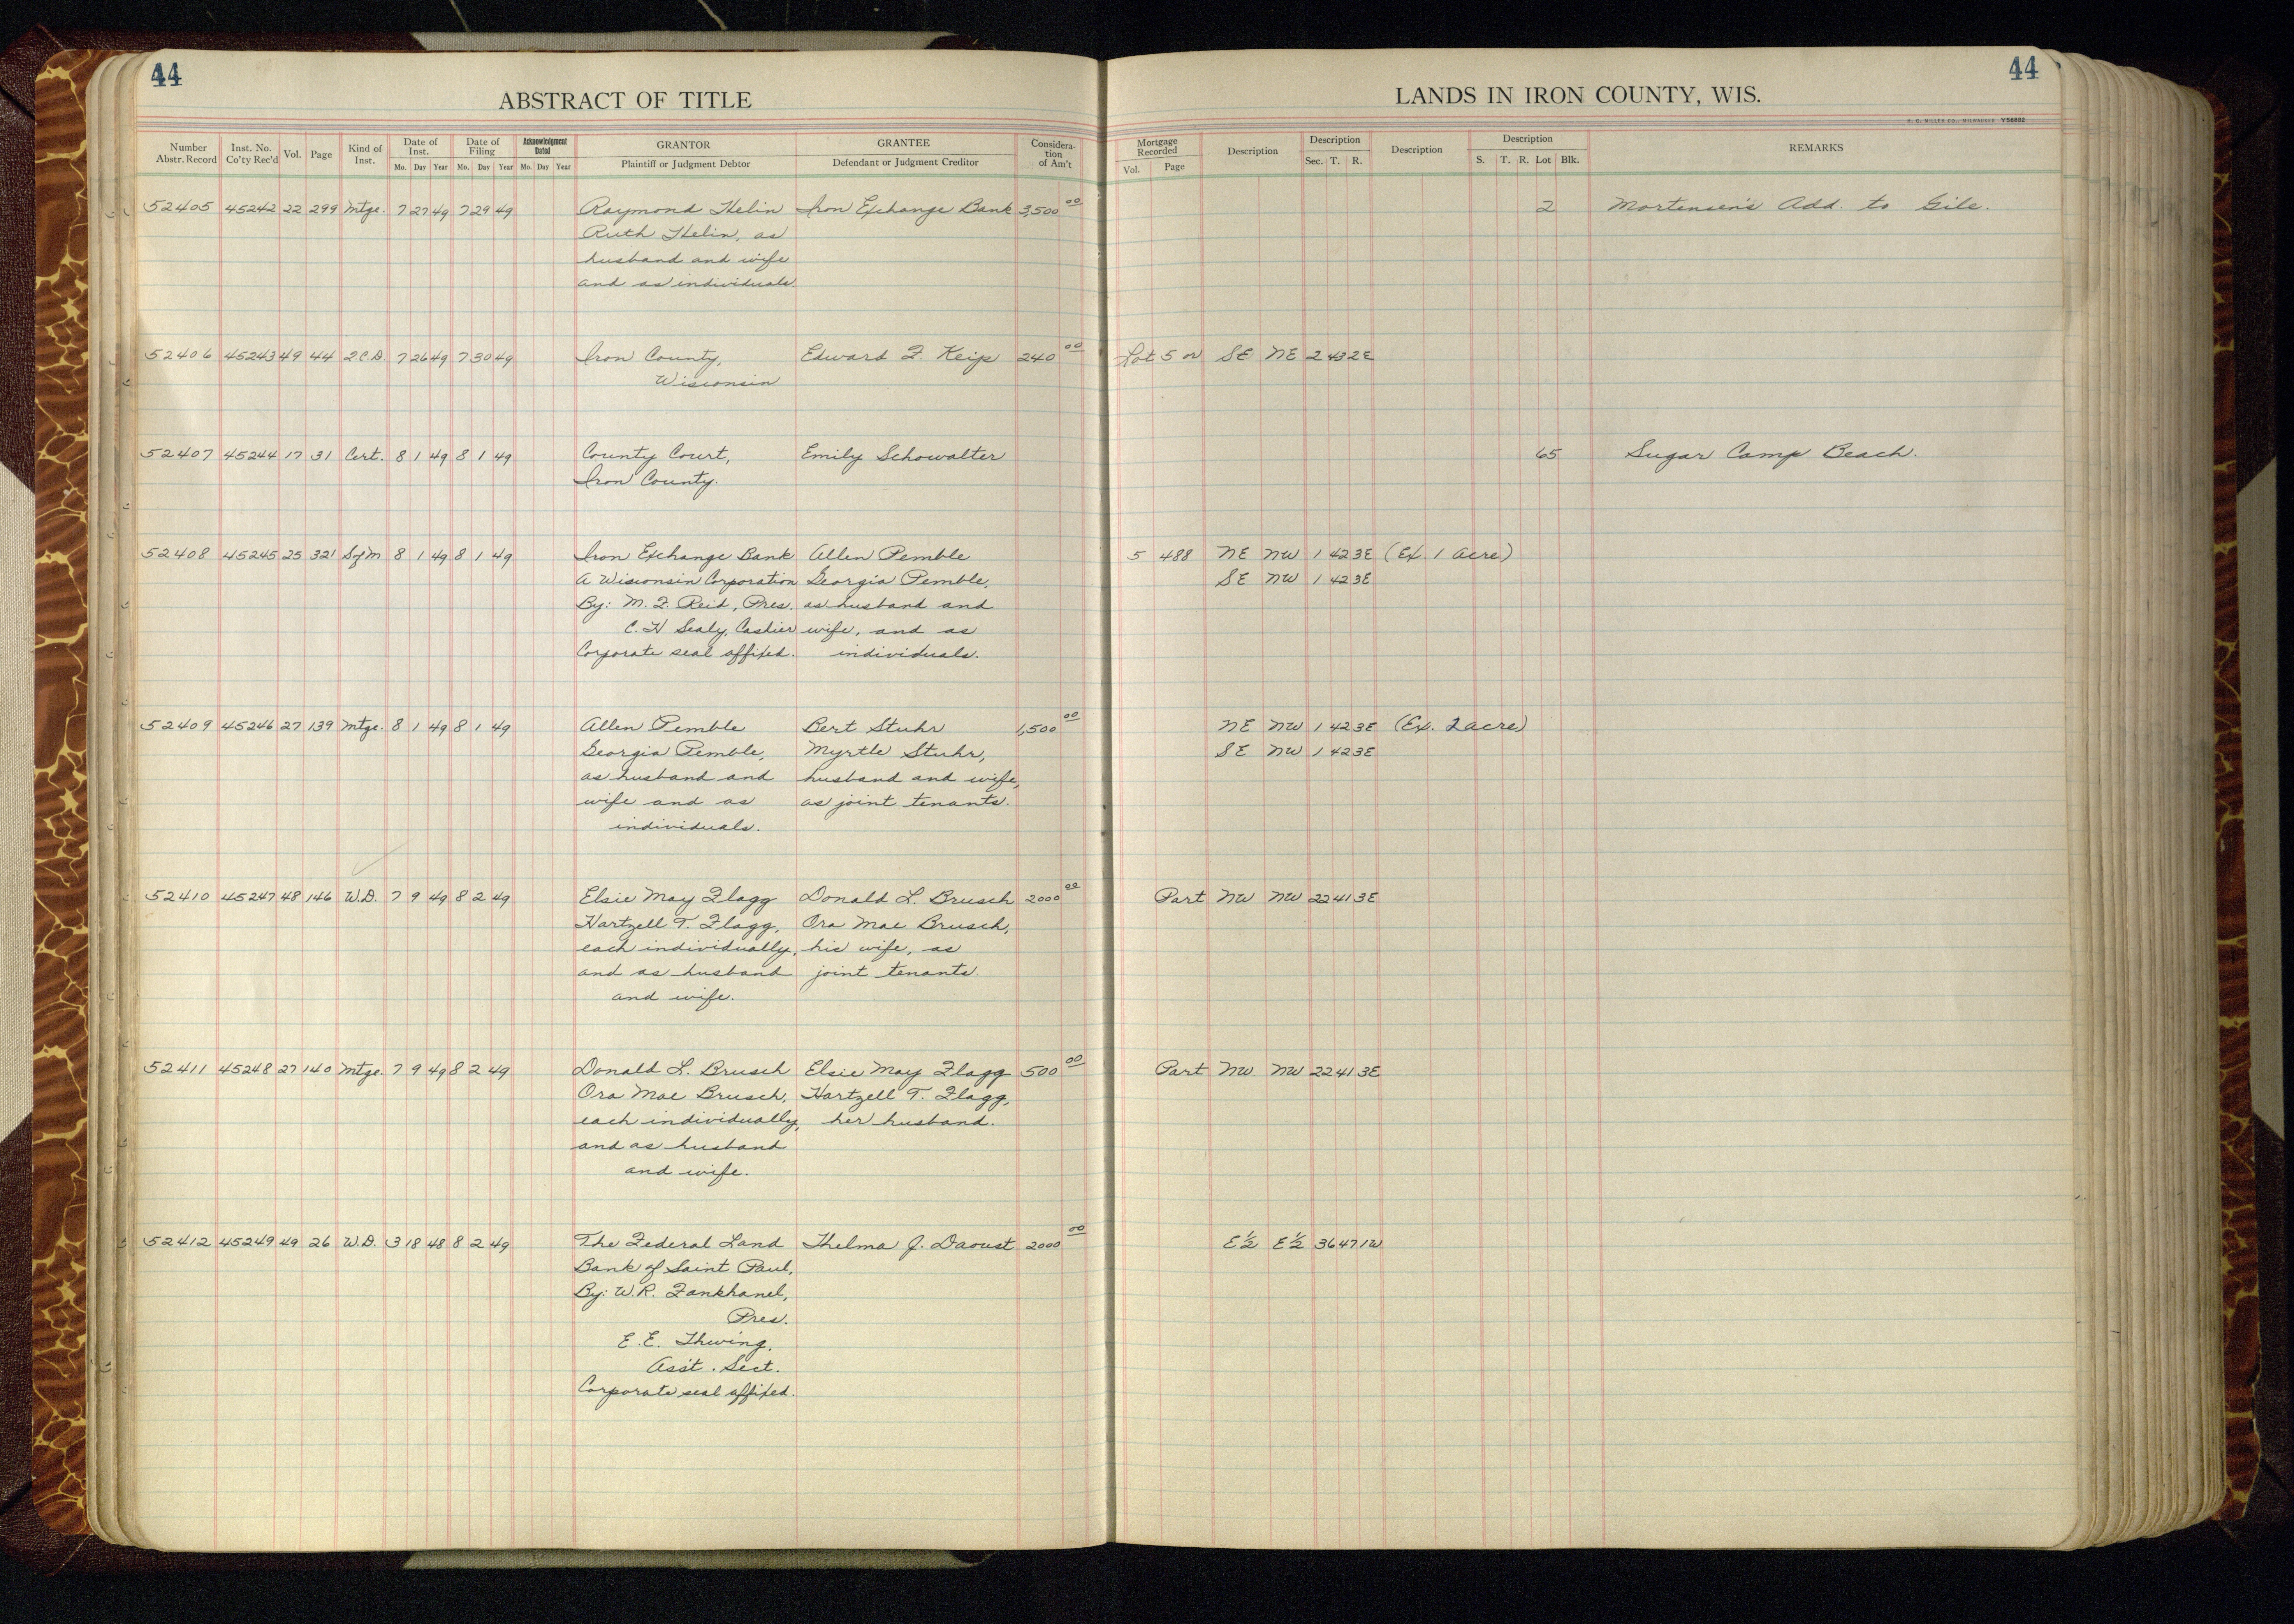 44
44
ABSTRACT OF TITLE
LANDS IN IRON COUNTY, WIS.
H. C. MILLER CO., MILWAUKEE Y58882
Number Abstr. Record
Inst. No. Co'ty Rec'd
Vol.
Page
Kind of Inst.
Date of Inst.
Mo. Day Year
Date of Filing
Mo. Day Year
Acknowledgment Dated
Mo. Day Year
GRANTOR
Plaintiff or Judgment Debtor
GRANTEE
Defendant or Judgment Creditor
Consideration of Am't
Mortgage Recorded
Vol. Page
Description
Description
Sec. T. R.
Description
Description
S. T. R. Lot Blk.
REMARKS
52405 45242 22 299 Mtge. 7 27 49 7 29 49 Raymond Helin Iron Exchange Bank 3,500 00 2 Mortensen's Add. to Gile.
Ruth Helin, as
husband and wife
and as individuals.
52406 45243 49 44 Q.C.D. 7 26 49 7 30 49 Iron County, Edward F. Keip 240 00 Lot 5 or SE NE 2 43 2E
Wisconsin
52407 45244 17 31 Cert. 8 1 49 8 1 49 County Court, Emily Schowalter 65 Sugar Camp Beach.
Iron County.
52408 45245 25 321 SofM 8 1 49 8 1 49 Iron Exchange Bank Allen Pemble 5 488 NE NW 1 42 3E (Ex. 1 acre)
A Wisconsin Corporation Georgia Pemble, SE NW 1 42 3E
By: M. F. Reid, Pres. as husband and
C. H Sealy, Cashier wife, and as
Corporate seal affixed. individuals.
52409 45246 27 139 Mtge. 8 1 49 8 1 49 Allen Pemble Bert Stuhr 1,500 00 NE NW 1 42 3E (Ex. 2 acre)
Georgia Pemble, Myrtle Stuhr, SE NW 1 42 3E
as husband and husband and wife,
wife and as as joint tenants.
individuals.
52410 45247 48 146 W.D. 7 9 49 8 2 49 Elsie May Flagg Donald L. Brusch 2000 00 Part NW NW 22 41 3E
Hartzell T. Flagg, Ora Mae Brusch,
each individually, his wife, as
and as husband joint tenants.
and wife.
52411 45248 27 140 Mtge. 7 9 49 8 2 49 Donald L. Brusch Elsie May Flagg 500 00 Part NW NW 22 41 3E
Ora Mae Brusch, Hartzell T. Flagg,
each individually, her husband.
and as husband
and wife.
52412 45249 49 26 W.D. 3 18 48 8 2 49 The Federal Land Thelma J. Daoust 2000 00 E½ E½ 36 47 1W
Bank of Saint Paul,
By: W.R. Fankhanel,
Pres.
E. E. Thwing,
Ass't. Sect.
Corporate seal affixed.